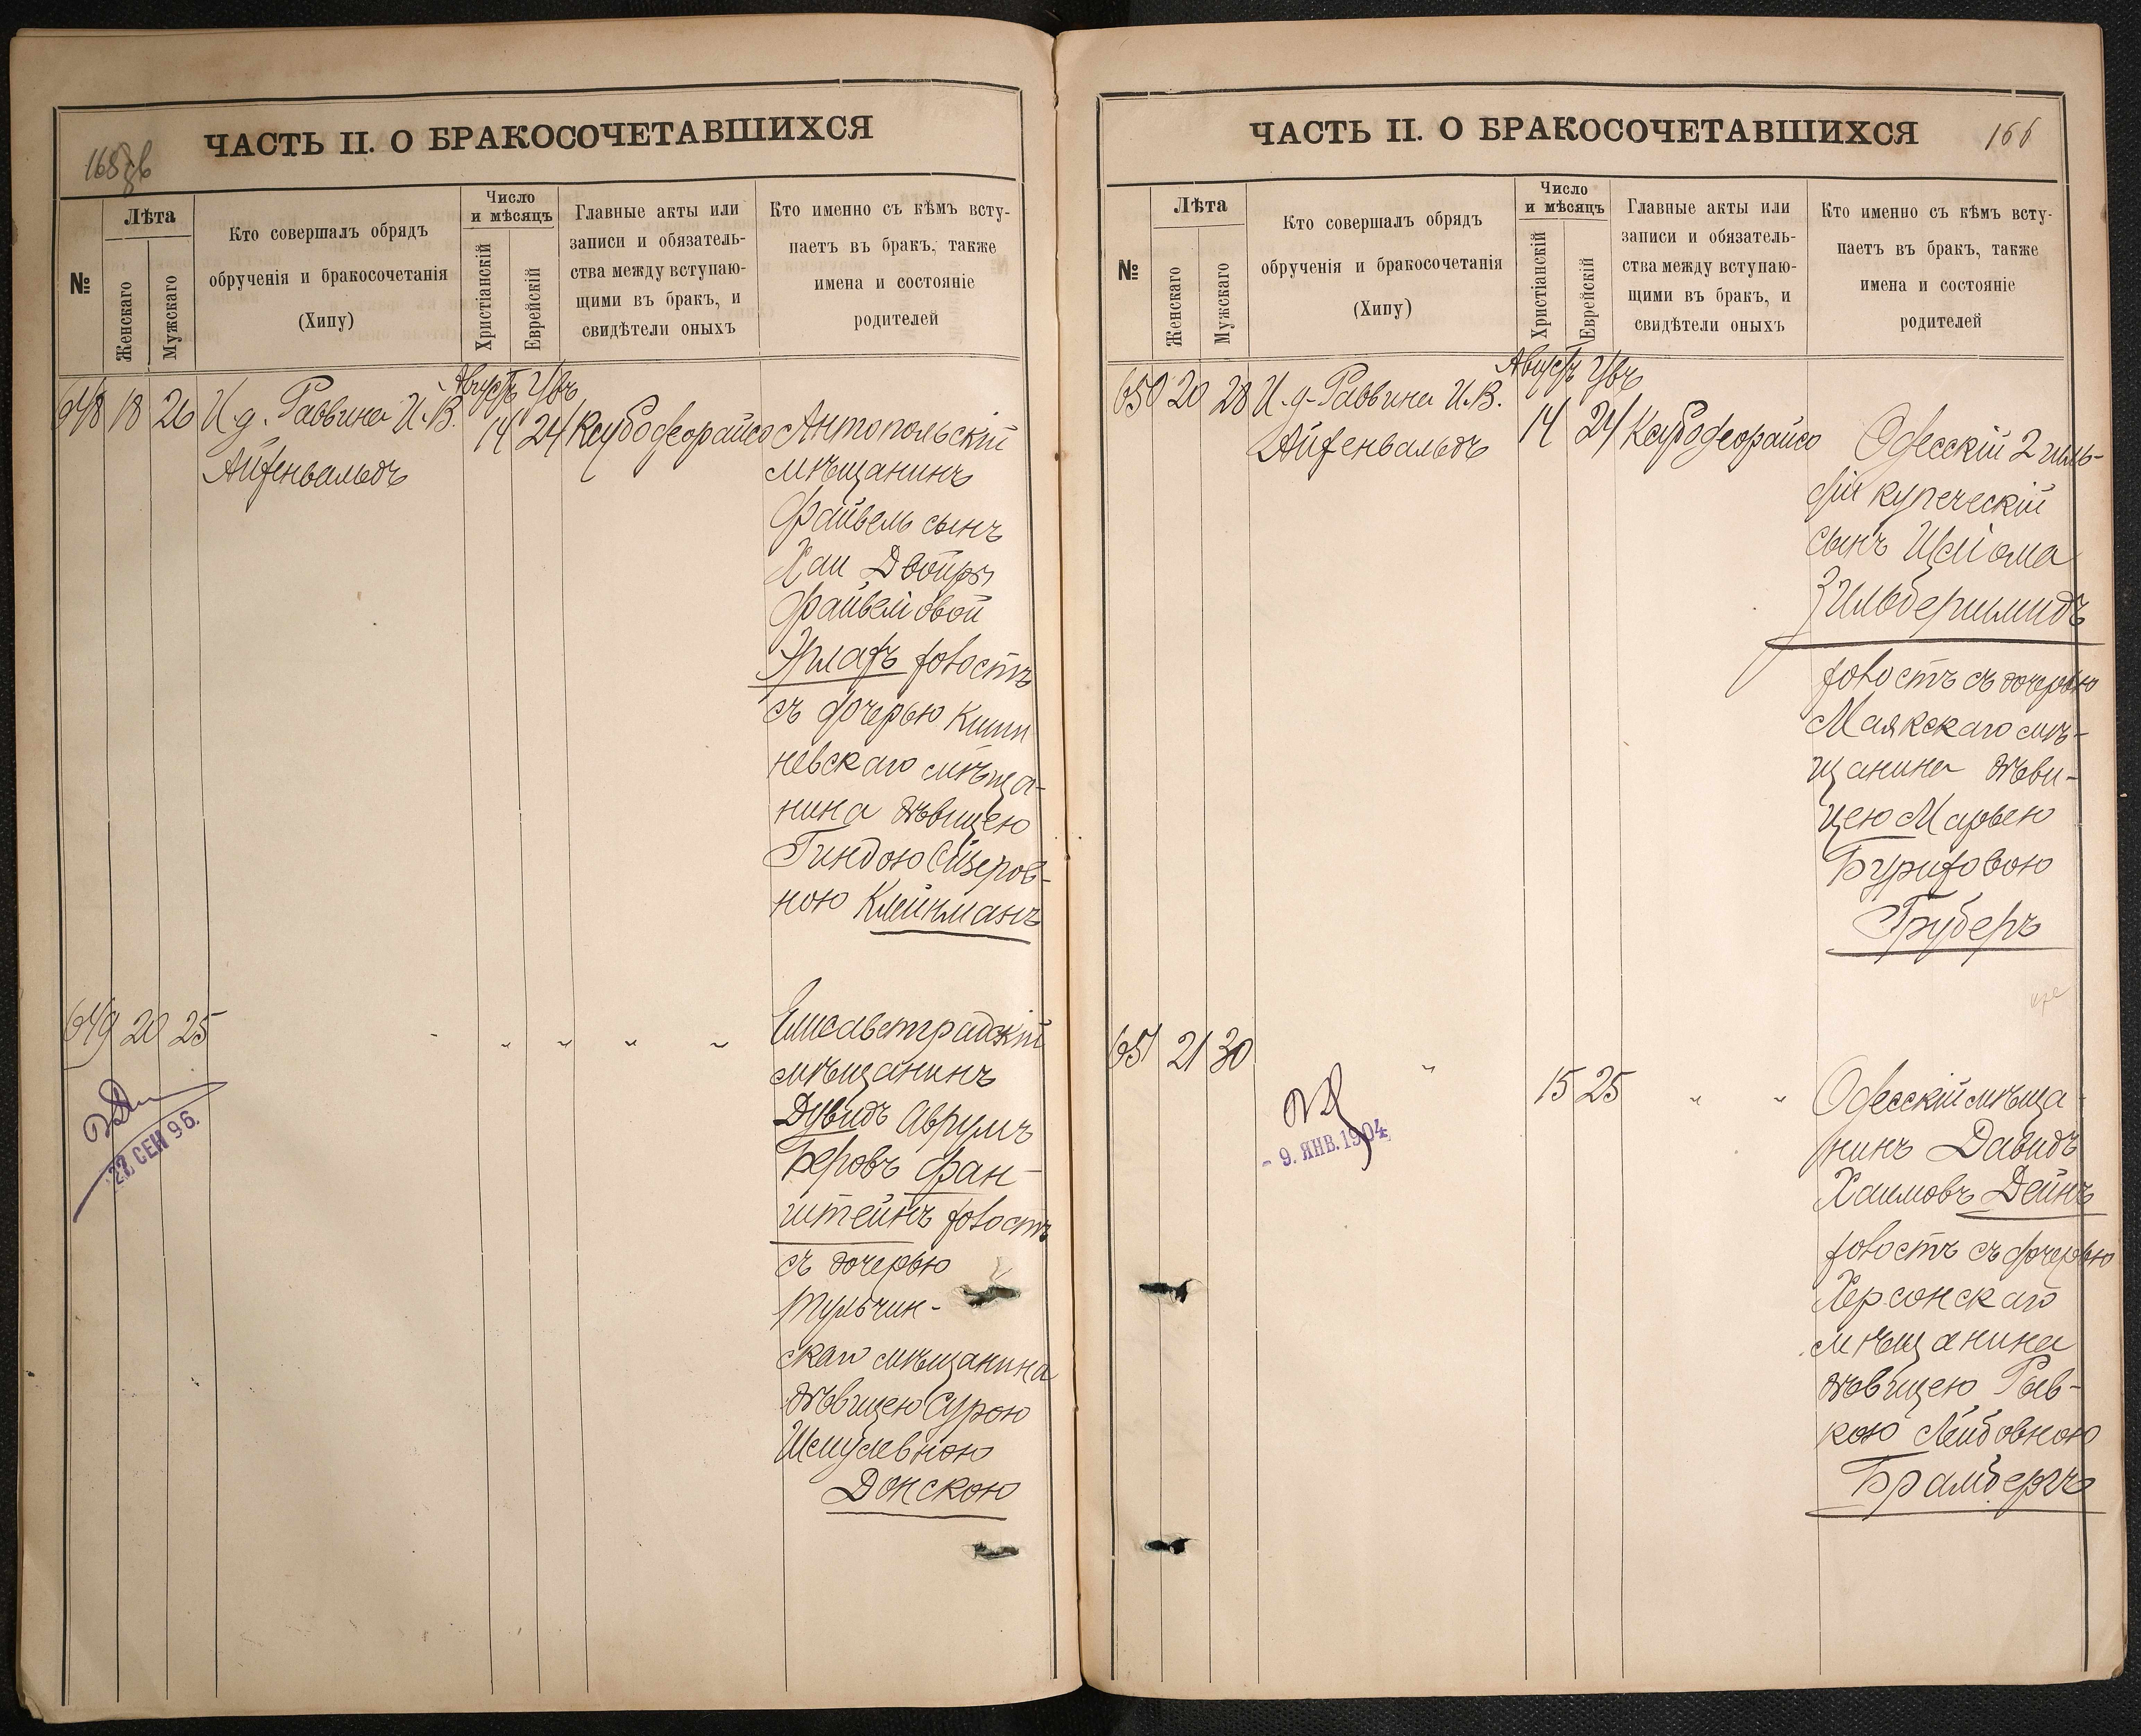 ЧАСТЬ II. О БРАКОСОЧЕТАВШИХСЯ
№
Лѣта
Женскаго
Мужскаго
Кто совершалъ обрядъ
обрученія и бракосочетанія
(Хипу)
Число
и мѣсяцъ
Христіанскій
Еврейскій
Главные акты или
записи и обязатель-
ства между вступаю-
щими въ бракъ, и
свидѣтели оныхъ
Кто именно съ кѣмъ всту-
паетъ въ бракъ, также
имена и состояніе
родителей
648 18 26 И. д. Раввина И. В.
Айзенвальдъ
Августъ
14 24
Антопольскій
мѣщанинъ
Файвель сынъ
Хаи Двойры
Файвелі овой
холостъ
съ дочерью Киши
невскаго мѣща-
нина дѣвицею
Гиндою
ною Клейнманъ
649 20 25 " " " " "
Елисаветградскій
мѣщанинъ
Дувидъ Аврумъ
Беровъ Фан-
штейнъ холостъ
съ дочерью
Тульчин-
скаго мѣщанина
дѣвицею Сурою
Шмулевною
Донскою
22 СЕН 96.
ЧАСТЬ II. О БРАКОСОЧЕТАВШИХСЯ
166
№
Лѣта
Женскаго
Мужскаго
Кто совершалъ обрядъ
обрученія и бракосочетанія
(Хипу)
Число
и мѣсяцъ
Христіанскій
Еврейскій
Главные акты или
записи и обязатель-
ства между вступаю-
щими въ бракъ, и
свидѣтели оныхъ
Кто именно съ кѣмъ всту-
паетъ въ бракъ, также
имена и состояніе
родителей
650 20 28 И. д. Раввина И. В.
Айзенвальдъ
Августъ
14 24
Одесскій 2 гиль-
діи купеческій
сынъ
Зильбершмидъ
холостъ съ дочерью
Маякскаго мѣ-
щанина дѣви-
цею Марьею
Груберъ
651 21 30 " 15 25 " "
Одесскій мѣща-
нинъ Давидъ
Хаимовъ Дейнъ
холостъ съ дочерью
Херсонскаго
мѣщанина
дѣвицею Рив-
кою Лейбовною
Брамбергъ
- 9. ЯНВ. 1904